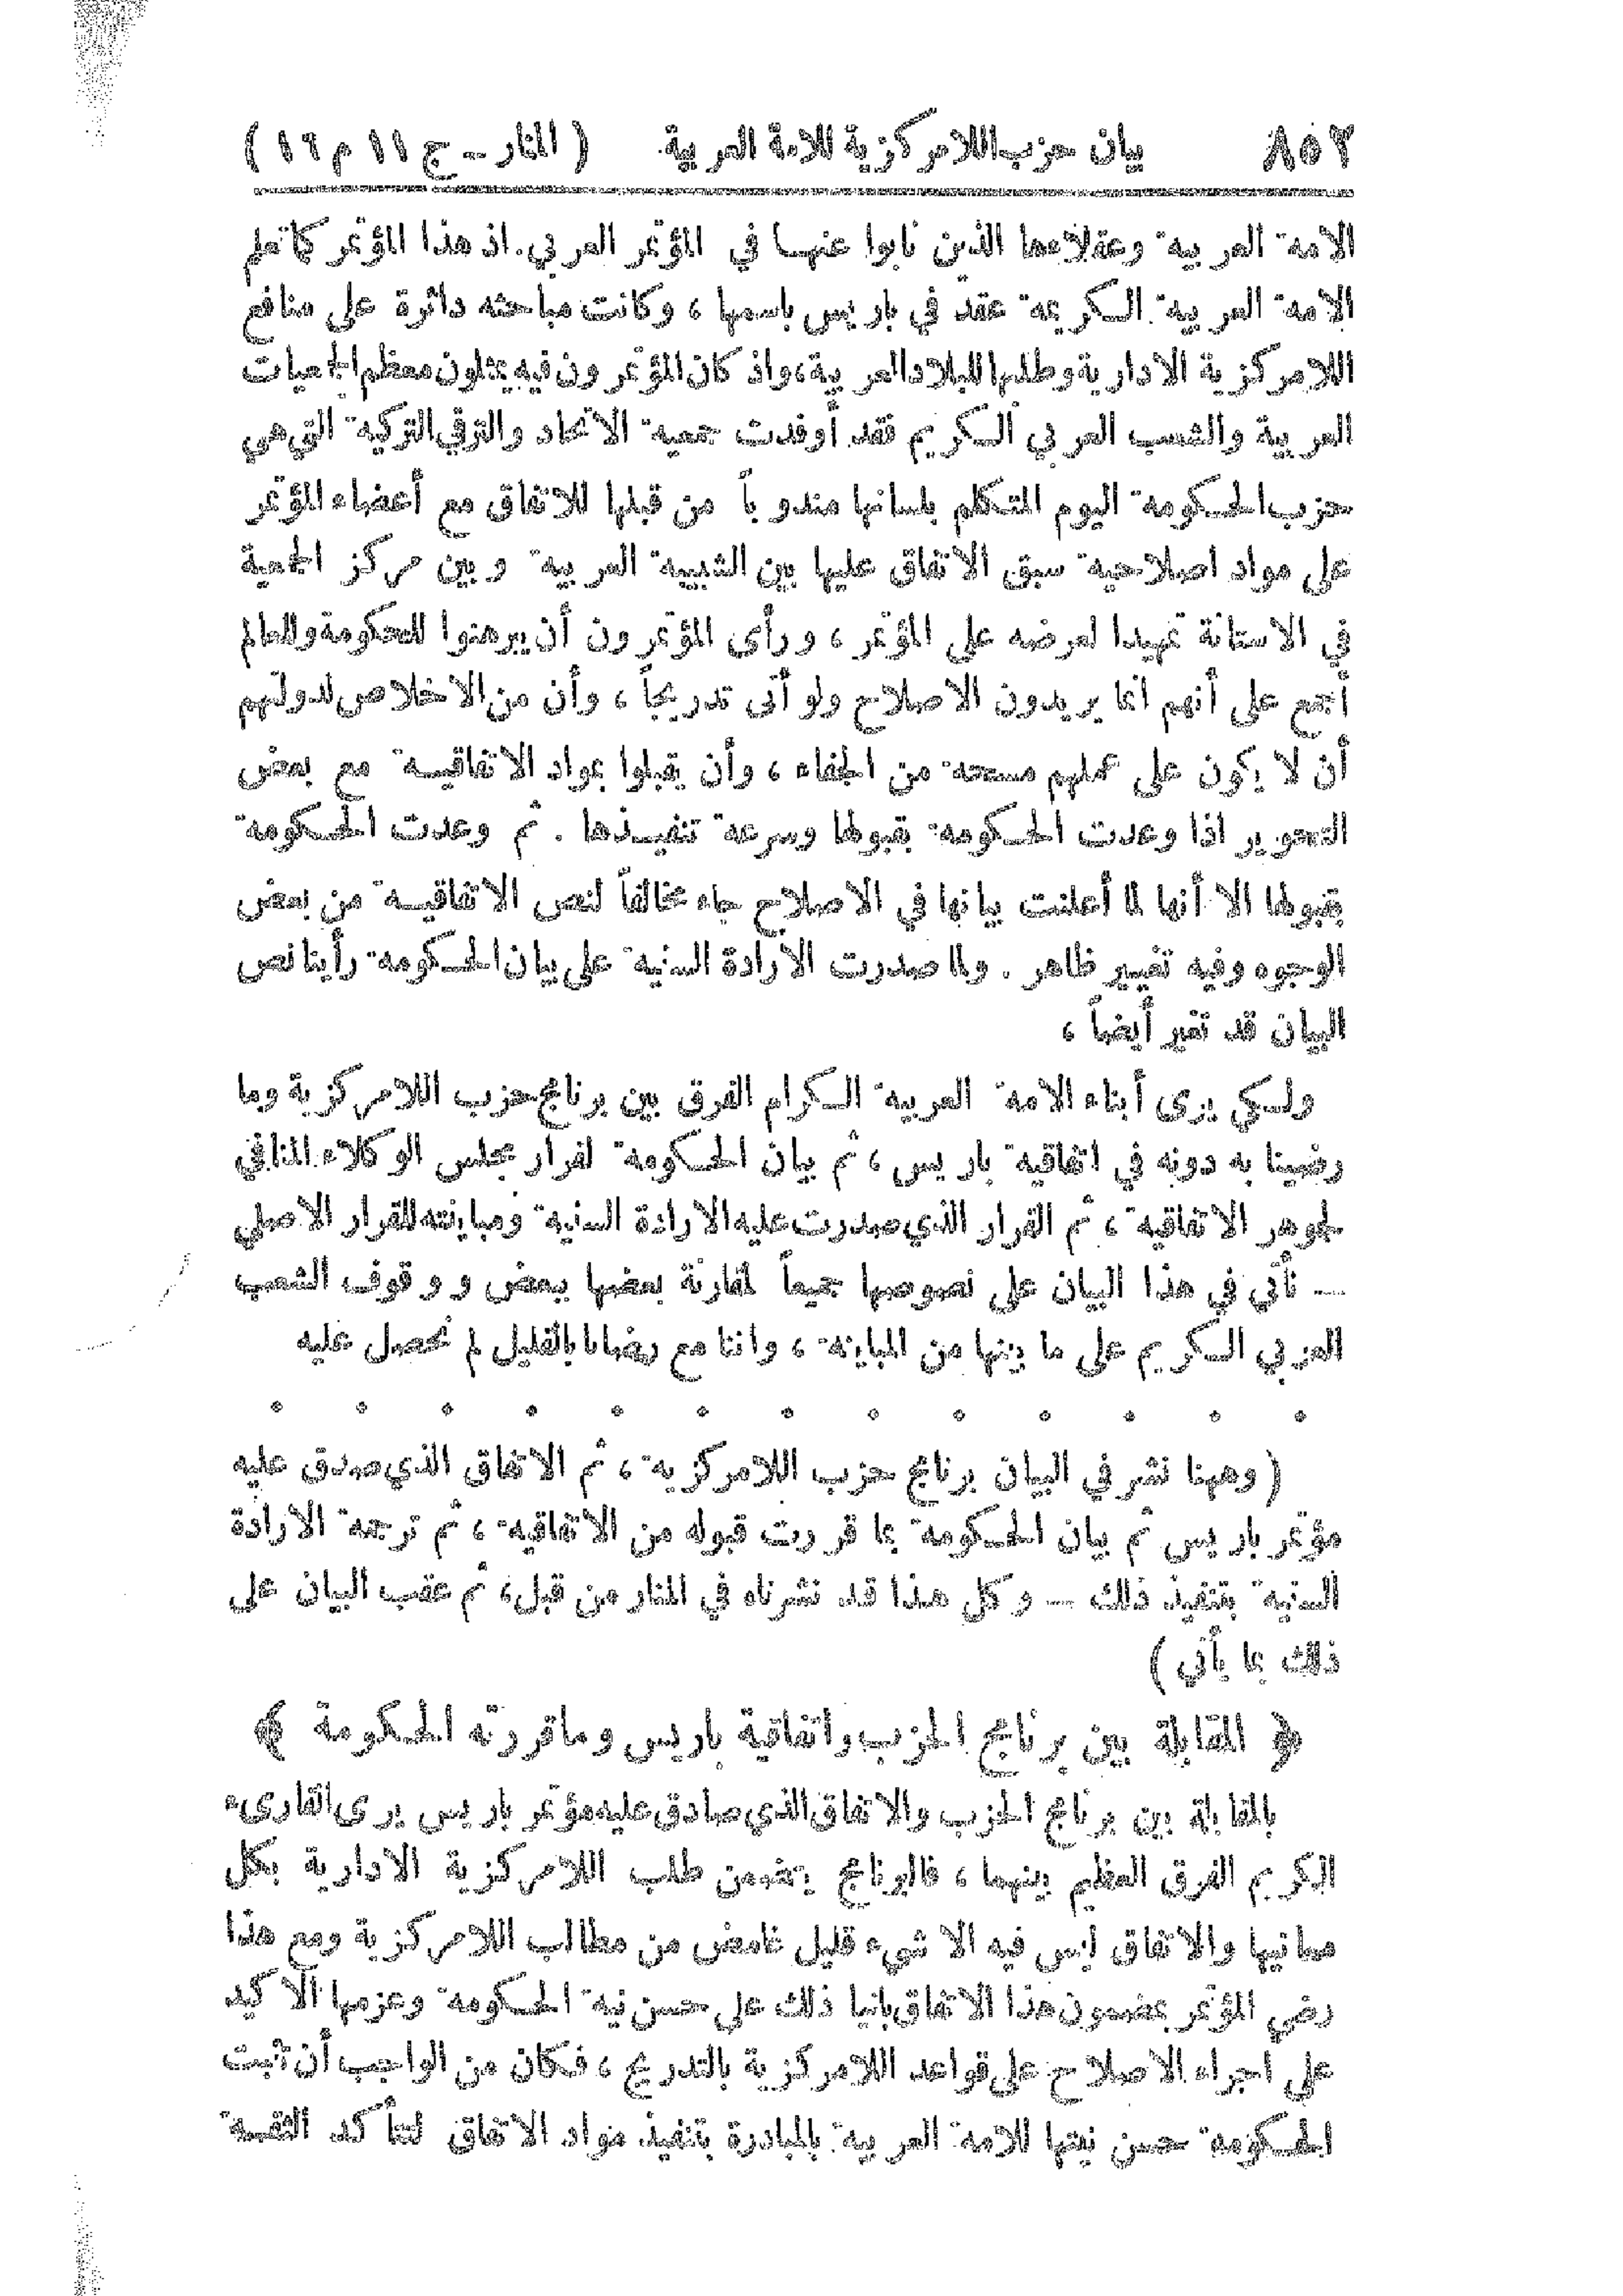 ٨٥٢ بيان حزب اللامركزية للامة العربية ( المنار ــ ج ١١ م ١٦ )
الامة العربية وعقلاءها الذين نابوا عنها في المؤتمر العربي. اذ هذا المؤتمر كما تعلم
الامة العربية الكريمة عقد في باريس باسمها ، وكانت مباحثه دائرة على منافع
اللامركزية الادارية وطلبها للبلاد العربية، واذ كان المؤتمرون فيه يمثلون معظم الجمعيات
العربية والشعب العربي الكريم فقد أوفدت جمعية الاتحاد والترقي التركية التي هي
حزب الحكومة اليوم المتكلم بلسانها مندوباً من قبلها للاتفاق مع أعضاء المؤتمر
على مواد اصلاحية سبق الاتفاق عليها بين الشبيبة العربية وبين مركز الجمعية
في الاستانة تمهيدا لعرضه على المؤتمر ، ورأى المؤتمرون أن يبرهنوا للحكومة وللعالم
أجمع على أنهم انما يريدون الاصلاح ولو أتى تدريجاً ، وأن من الاخلاص لدولتهم
أن لا يكون على عملهم مسحة من الجفاء ، وأن يقبلوا بمواد الاتفاقية مع بعض
التحوير اذا وعدت الحكومة بقبولها وسرعة تنفيذها . ثم وعدت الحكومة
بقبولها الا أنها لما أعلنت بيانها في الاصلاح جاء مخالفاً لنص الاتفاقية من بعض
الوجوه وفيه تغيير ظاهر . ولما صدرت الارادة السنية على بيان الحكومة رأينا نص
البيان قد تغير أيضاً ،
ولكي يرى أبناء الامة العربية الكرام الفرق بين برنامج حزب اللامركزية وما
رضينا به دونه في اتفاقية باريس ، ثم بيان الحكومة لقرار مجلس الوكلاء المنافي
لجوهر الاتفاقية ، ثم القرار الذي صدرت عليه الارادة السنية ومباينته للقرار الاصلي
ــ نأتي في هذا البيان على نصوصها جميعاً لمقارنة بعضها ببعض ووقوف الشعب
العربي الكريم على ما بينها من المباينة ، واننا مع رضانا بالقليل لم نحصل عليه
. . . . . . . . . . . . .
( وههنا نشر في البيان برنامج حزب اللامركزية ، ثم الاتفاق الذي صدق عليه
مؤتمر باريس ثم بيان الحكومة بما قررت قبوله من الاتفاقية ، ثم ترجمة الارادة
السنية بتنفيذ ذلك ــ وكل هذا قد نشرناه في المنار من قبل، ثم عقب البيان على
ذلك بما يأتي )
﴿ المقابلة بين برنامج الحزب واتفاقية باريس وما قررته الحكومة ﴾
بالمقابلة بين برنامج الحزب والاتفاق الذي صادق عليه مؤتمر باريس يرى القارىء
الكريم الفرق العظيم بينهما ، فالبرنامج يتضمن طلب اللامركزية الادارية بكل
معانيها والاتفاق ليس فيه الا شيء قليل غامض من مطالب اللامركزية ومع هذا
رضي المؤتمر بمضمون هذا الاتفاق بانيا ذلك على حسن نية الحكومة وعزمها الاكيد
على اجراء الاصلاح على قواعد اللامركزية بالتدريج ، فكان من الواجب أن تثبت
الحكومة حسن نيتها للامة العربية بالمبادرة بتنفيذ مواد الاتفاق لتتأكد الثقة